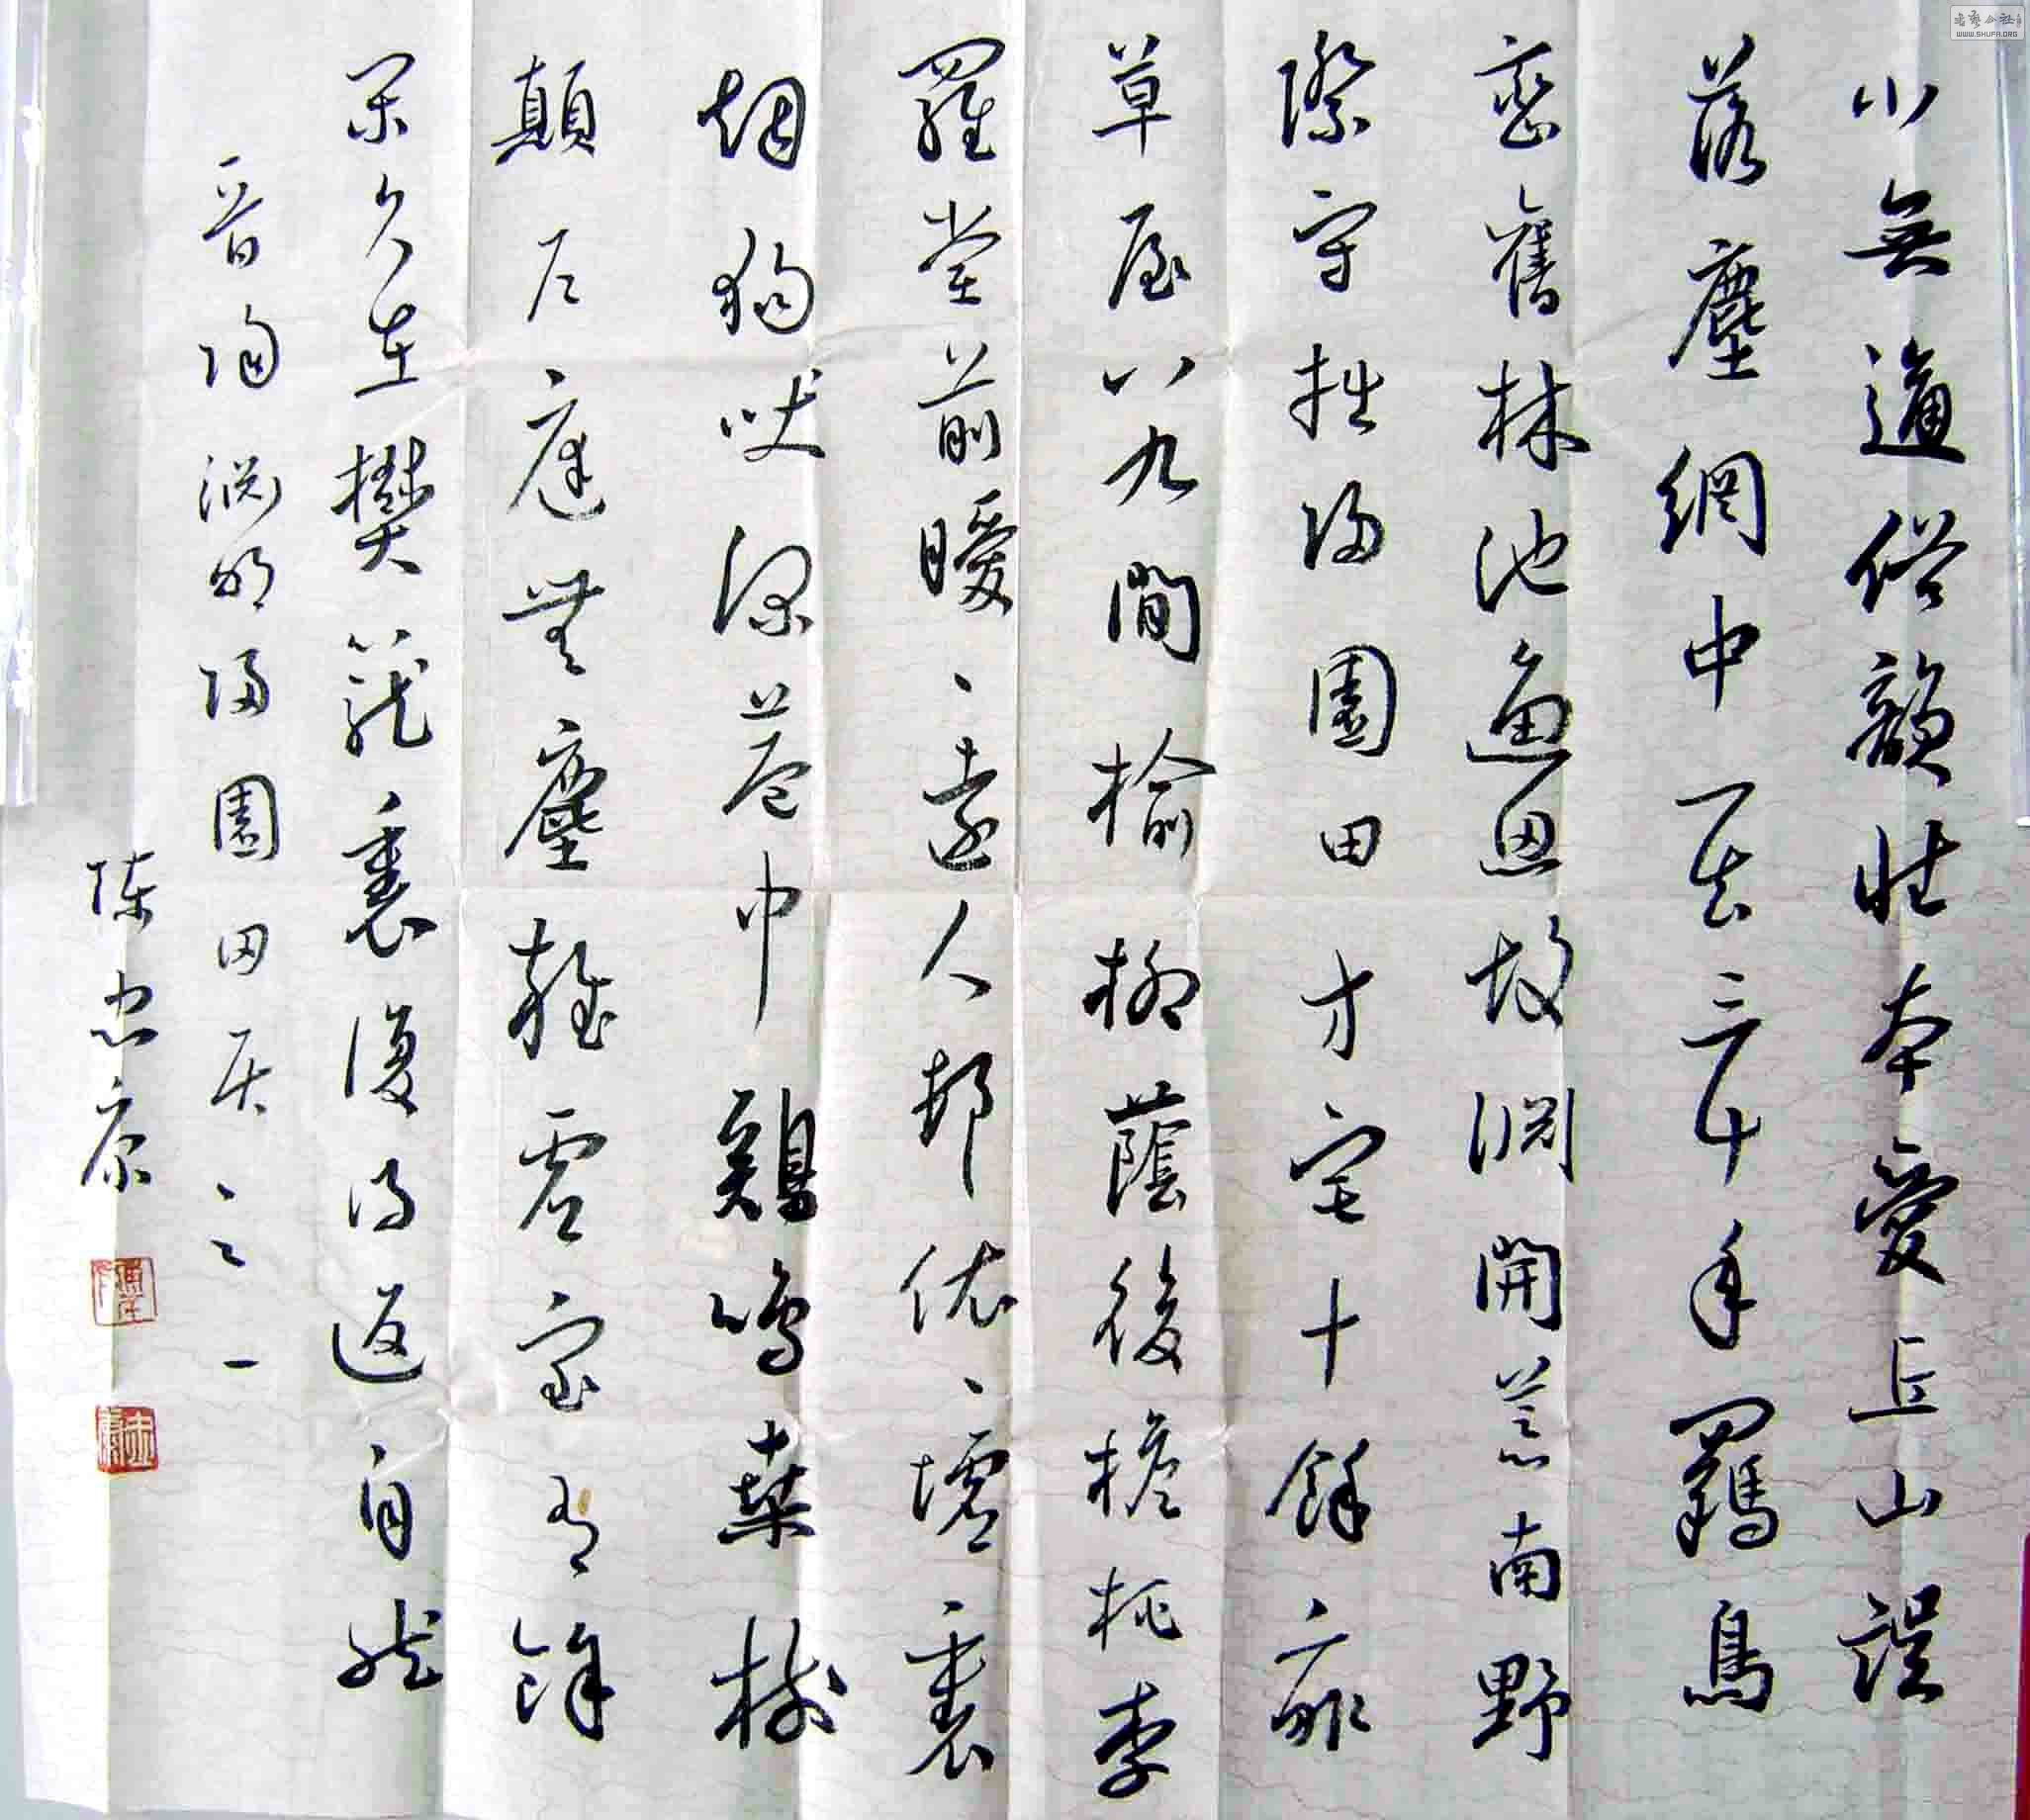 小無適俗韻性本愛丘山誤
落塵網中一去三十年羈鳥
恋舊林池魚思故淵開荒南野
際守拙歸園田方宅十餘畝
草屋八九間榆柳蔭後檐桃李
羅堂前曖、遠人邨依、墟裏
烟狗吠深巷中鷄鳴桑樹
顛户庭無塵雜虚室有餘
閑久在樊籠裏復得返自然
晋陶淵明歸園田居、之一
陳忠康
WWW.SHUFA.ORG